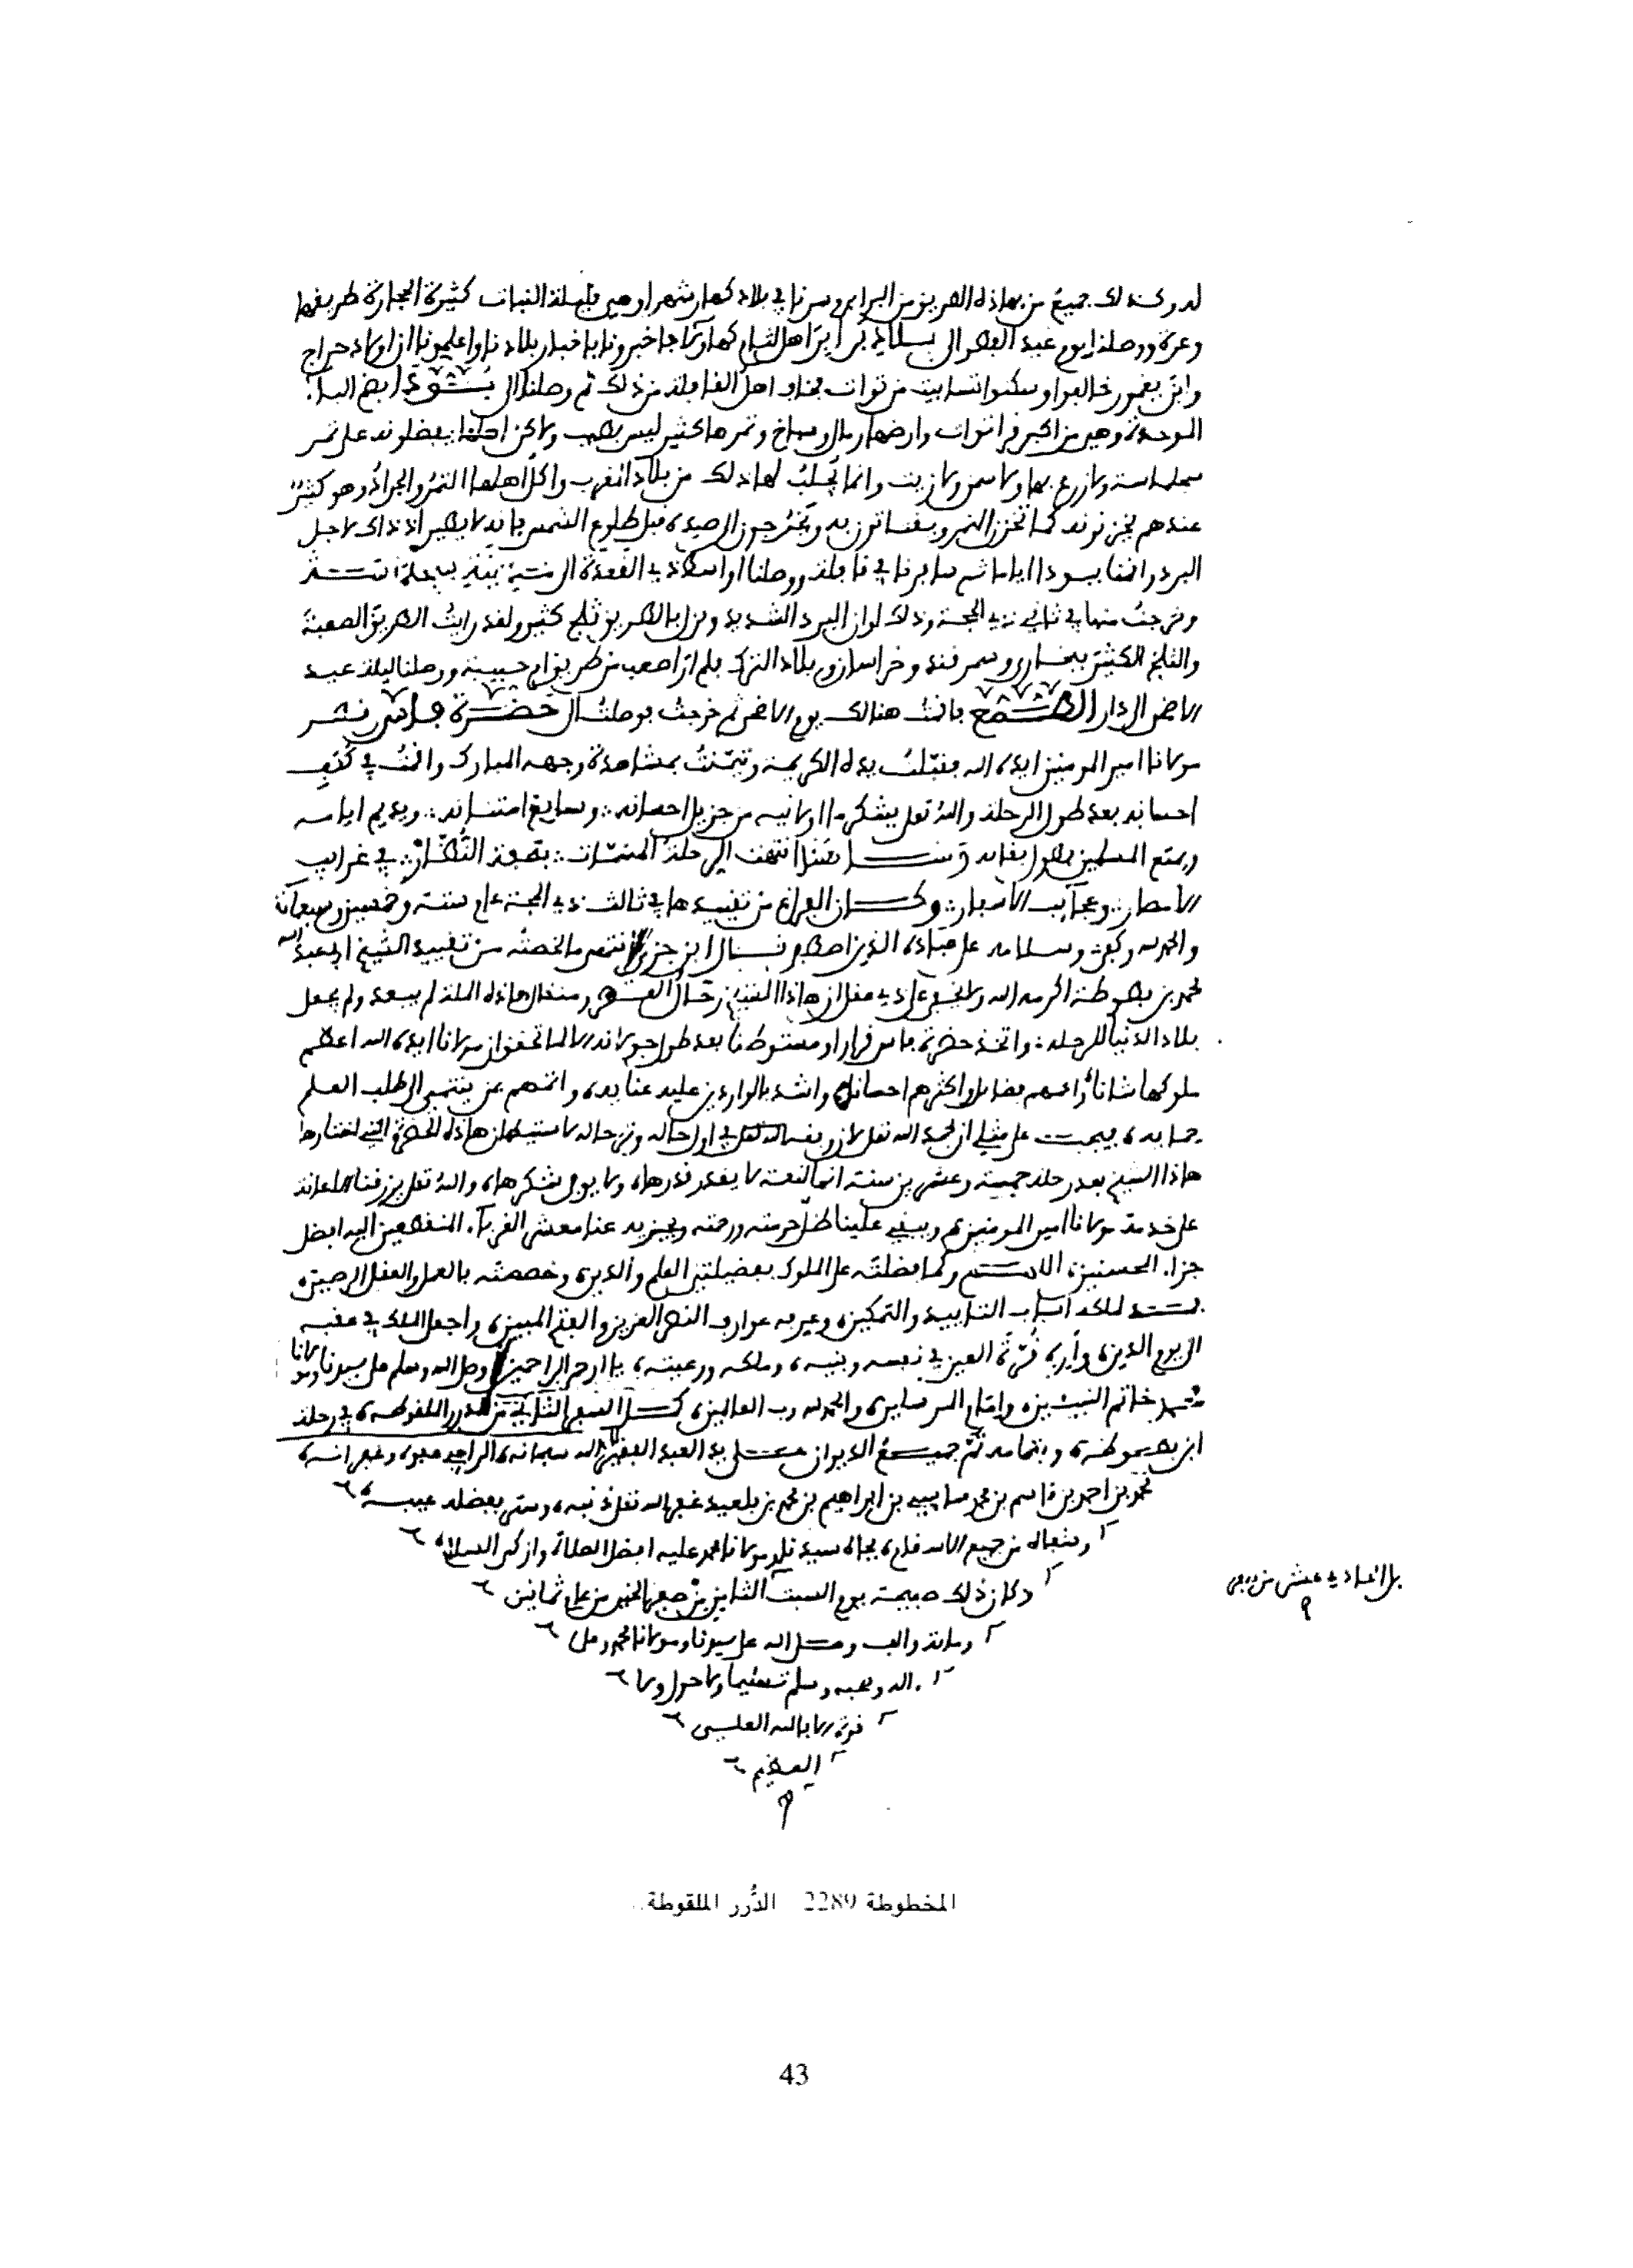 له وكذلك جميع من بهاذه الطريق من البرابر وسرنا في بلاد هكار شهرا وهي قليلة النبات كثيرة الحجارة طريقها
وعر ووصلنا يوم عيد الفطر الى بلاد برابر اهل لثام كهاولاء فاخبرونا باخبار بلادنا واعلمونا ان اولاد خراج
وابن يغمور خالفوا وسكنوا تسابيت من توات فخاف اهل القافلة من ذلك ثم وصلنا الى بُودَا بضم الباء
الموحدة وهي من اكبر قرا توات وارضها رمال وسباخ وتمرها كثير ليس بطيب ولاكن اهلها يفضلونه على تمر
سجلماسة ولا زرع بها ولا سمن ولا زيت وانما يُجلبُ لها ذلك من بلاد المغرب واكل اهلها التمر والجراد وهو كثير
عندهم يخزنونه كما تخزن التمر ويقتاتون به ويخرجون الى صيده قبل طلوع الشمس فانه لا يطير اذ ذاك لاجل
البرد واقمنا ببودا اياما ثم سافرنا في قافلة ووصلنا اواسط ذي القعدة الى مدينة سجلماسة
وخرجتُ منها في ثاني ذي الحجة وذلك اوان البرد الشديد ونزل بالطريق ثلج كثير ولقد رايت الطريق الصعبة
والثلج الكثير ببخارى وسمرقند وخراسان وبلاد الترك فلم ار اصعب من طريق ام جنيبة ووصلنا ليلة عيد
الاضحى الى دار الطمع فاقمت هنالك يوم الاضحى ثم خرجت فوصلت الى حضرة فاس
مولانا امير المومنين ايده الله فقبلت يده الكريمة وتيمنتُ بمشاهدة وجهه المبارك واقمت في كنف
احسانه بعد طول الرحلة والله تعلى يشكر ما اولانيه من جزيل احسانه وسابغ امتنانه ويديم ايامه
ويمتع المسلمين بطول بقائه وهاهنا انتهت الرحلة المسمات بتحفة النظار في غرايب
الامصار وعجايب الاسفار وكان الفراغ من تقييدها في ثالث ذي الحجة عام ستة وخمسين وسبعمائة
والحمد لله وكفى وسلامه على عباده الذين اصطفى قال ابن جزي انتهى ما لخصته من تقييد الشيخ ابي عبد الله
محمد بن بطوطة اكرمه الله ولا يخفى على ذي عقل ان هاذا الشيخ رحال العصر ومن قال رحال هاذه الملة لم يبعد ولم يجعل
بلاد الدنيا للرحلة واتخذ حضرة فاس قرارا ومستوطنا بعد طول جولانه الا لما تحقق ان مولانا ايده الله اعظم
ملوكها شانا واعمهم فضايل واكثرهم احسانا واشدهم بالواردين عليه عناية واتمهم بمن ينتمي الى طلب العلم
حماية فيجب على مثلي ان يحمد الله تعلى لان وفقه في اول حاله وترحاله لاستيطان هاذه الحضرة التي اختارها
هاذا الشيخ بعد رحلة خمسة وعشرين سنة انها لنعمة لا يقدر قدرها ولا يوفى شكرها والله تعلى يرزقنا الاعانة
على خدمة مولانا امير المومنين ويبقي علينا ظل حرمته ورحمته ويجزيه عنا معشر الغرباء المنقطعين اليه افضل
جزاء المحسنين اللهم وكما فضلته على الملوك بفضيلتي العلم والدين وخصصته بالحلم والعقل الرصين
فمد لملكه اسباب التاييد والتمكين وعرفه عوارف النصر العزيز والفتح المبين واجعل الملك في عقبه
الى يوم الدين وأره قرة العين في نفسه وبنيه وملكه ورعيته يا ارحم الراحمين وصلى الله وسلم على سيدنا ومولانا
محمد خاتم النبيين وامام المرسلين والحمد لله رب العالمين كمل السفر الثاني من الدرر الملقوطة في رحلة
ابن بطوطة وبتمامه تم جميع الديوان على يد العبد الفقير الى الله سبحانه الراجي عفوه وغفرانه
محمد بن احمد بن قاسم بن محمد بن ابراهيم بن محمد بن بلعيد غفر الله تعلى ذنبه وستر بفضله عيبه
وشفاه من جميع الاسقام بجاه سيدنا ومولانا محمد عليه افضل الصلاة وازكى السلام
وكان ذلك صبيحة يوم السبت الثامن من صفر الخير من عام ثمانين
ومائة والف وصلى الله على سيدنا ومولانا محمد وعلى
اله وصحبه وسلم تسليما ولا حول ولا
قوة الا بالله العلي
العظيم
المخطوطة 2289 الدُّرر الملقوطة..
43